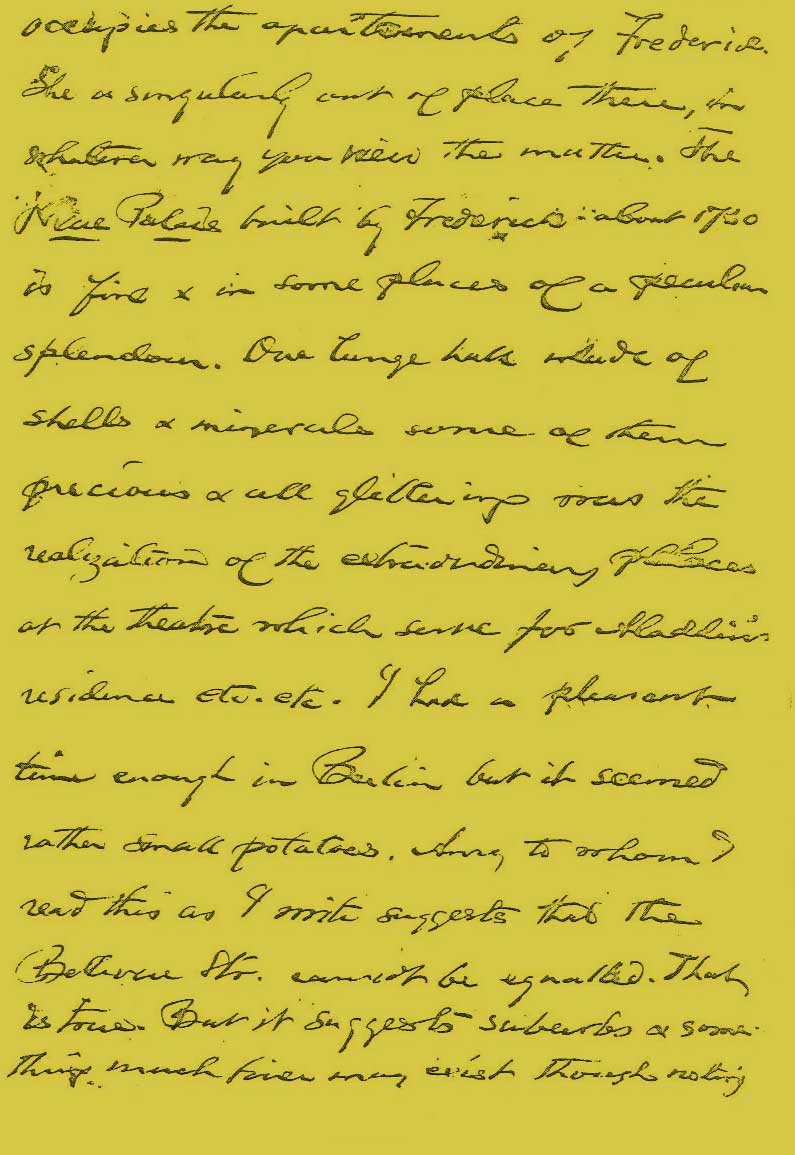 occupies the apartments of Frederick.
She is singularly out of place there, in
whatever way you view the matter. The
Neue Palais built by Frederick about 1760
is fine & in some places of a peculiar
splendour. One large hall made of
shells & minerals some of them
precious & all glittering was the
realization of the extraordinary places
at the theatre which serve for Aladdin's
residence etc. etc. I had a pleasant
time enough in Berlin but it seemed
rather small potatoes. Amy to whom I
read this as I write suggests that the
Bellevue Str. cannot be equalled. That
is true. But it suggests suburbs & some-
thing much finer may exist though nothing